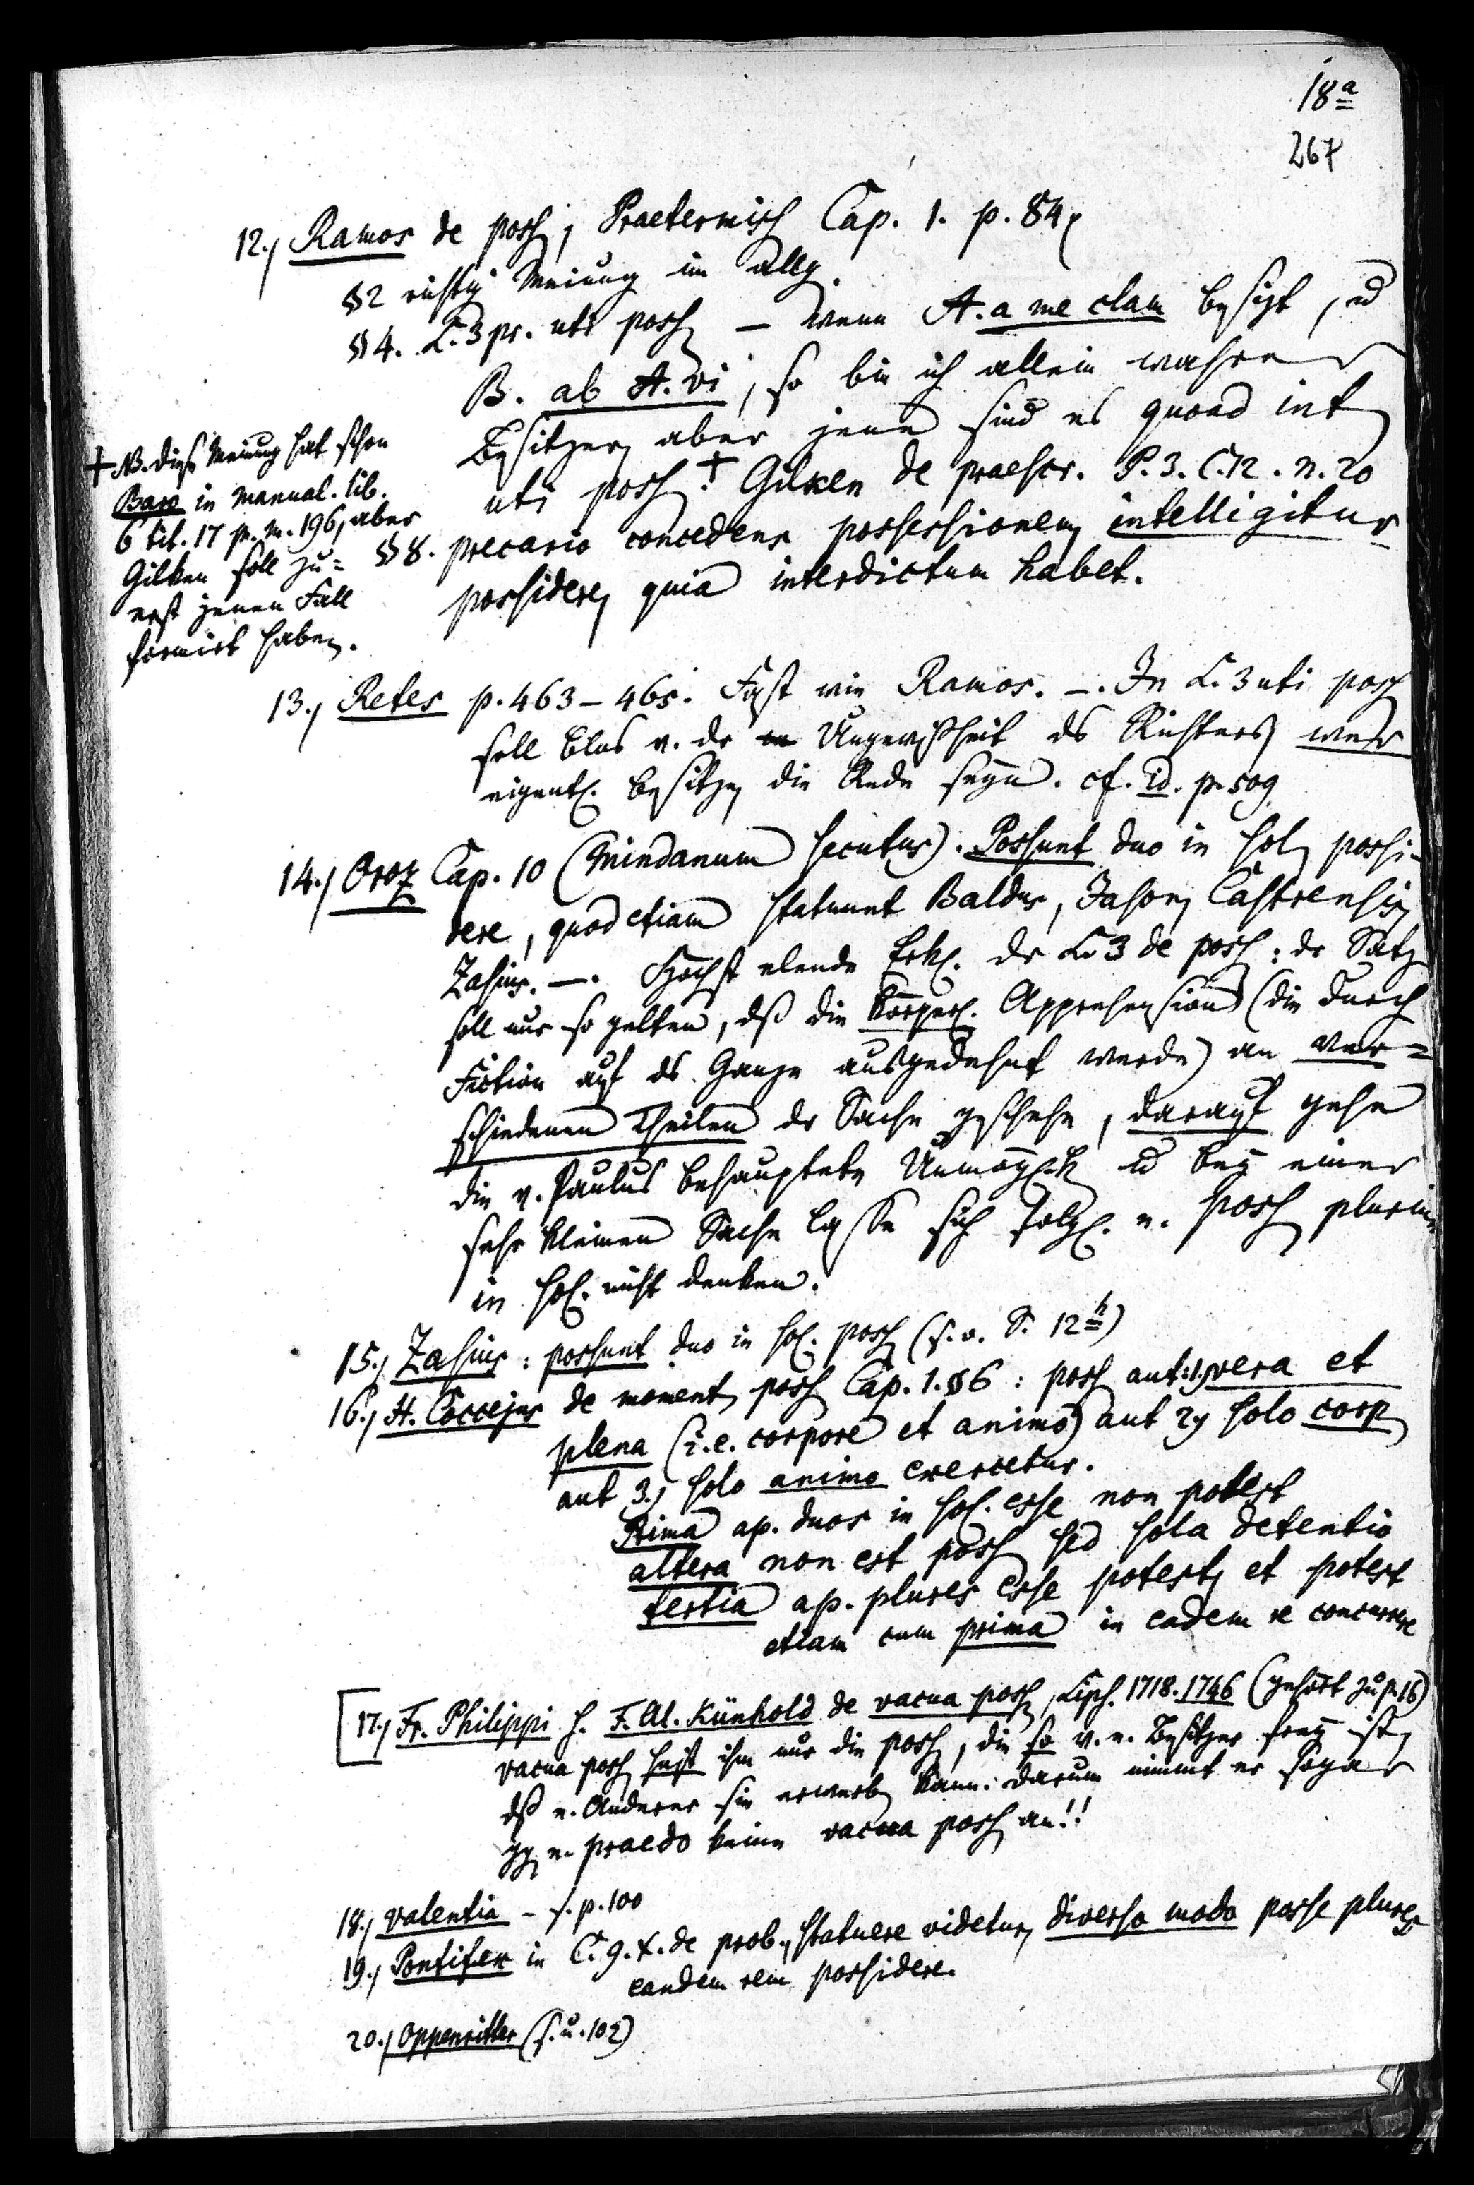 18a
267
12.) Ramos de poss, Praetermiss Cap. 1. p. 84,
§2 richtige Meinung im Allg.
§4. L. 3 pr. uti poss – wenn A. a me clam besizt, u
B. ab A. vi, so bin ich allein wahrer
Besitzer, aber jene sind es quoad int
uti poss.† Gilken de praescr. P. 3. C. 12. n. 20
§8. precario concedens possessionem intelligitur
possidere, quia interdictum habet.
† NB. diese Meinung hat schon
Baro in manual. lib.
6 tit. 17 p. m. 196, aber
Gilken soll zu=
erst jenen Fall
formirt haben.
13.) Retes p. 463–465. Fast wie Ramos. –. In L. 3 uti poss
soll blos v. der Ungewißheit ds Richters, wer
eigentl. besitze, die Rede seyn. cf. id. p. 509
14.) Oroz Cap. 10 (Mindanum secutus). Possunt duo in sol possi-
dere, quod etiam statuunt Baldus, Jason, Castrensis,
Zasius. –. Höchst elende Erkl. der L. 3 de poss: der Satz
soll nur so gelten, dß die körperl. Apprehension (die durch
Fiction auf ds Ganze ausgedehnt werde) an ver=
schiedenen Theilen der Sache geschehe, darauf gehe
die v. Paulus behauptete Unmöglichk u bey einer
sehr kleinen Sache lasse sich folgl. e. poss plurium
in sol. nicht denken.
15.) Zasius: possunt duo in sol. poss (s. o. S. 12h)
16.) H. Coccejus de moment poss Cap. 1. §6: poss aut 1.) vera et
plena (i. e. corpore et animo) aut 2) solo corp
aut 3.) solo animo exercetur.
Prima ap. duos in sol. esse non potest
altera non est poss sed sola detentio
tertia ap. plures esse potest, et potest
etiam cum prima in eadem re concurrere
17.) Fr. Philippi s. F. Al. Künhold de vacua poss, Lips. 1718. 1746 (gehört zu p. 16)
vacua poss heißt ihm nur die poss, die so v. e. Besitzer frey ist,
dß e. Anderer sie erwerb kann: darum nimmt er sogar
gg e. praedo keine vacua poss an!!
18.) Valentia – s. p. 100
19.) Pontifex in C. 9. X. de prob., statuere videtur, diverso modo posse plures
eandem rem possidere.
20.) Oppenritter (s. u. 102)